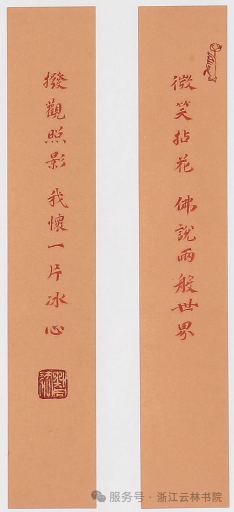 微笑拈花 佛說兩般世界
撥觀照影 我懷一片冰心
服务号·浙江云林书院